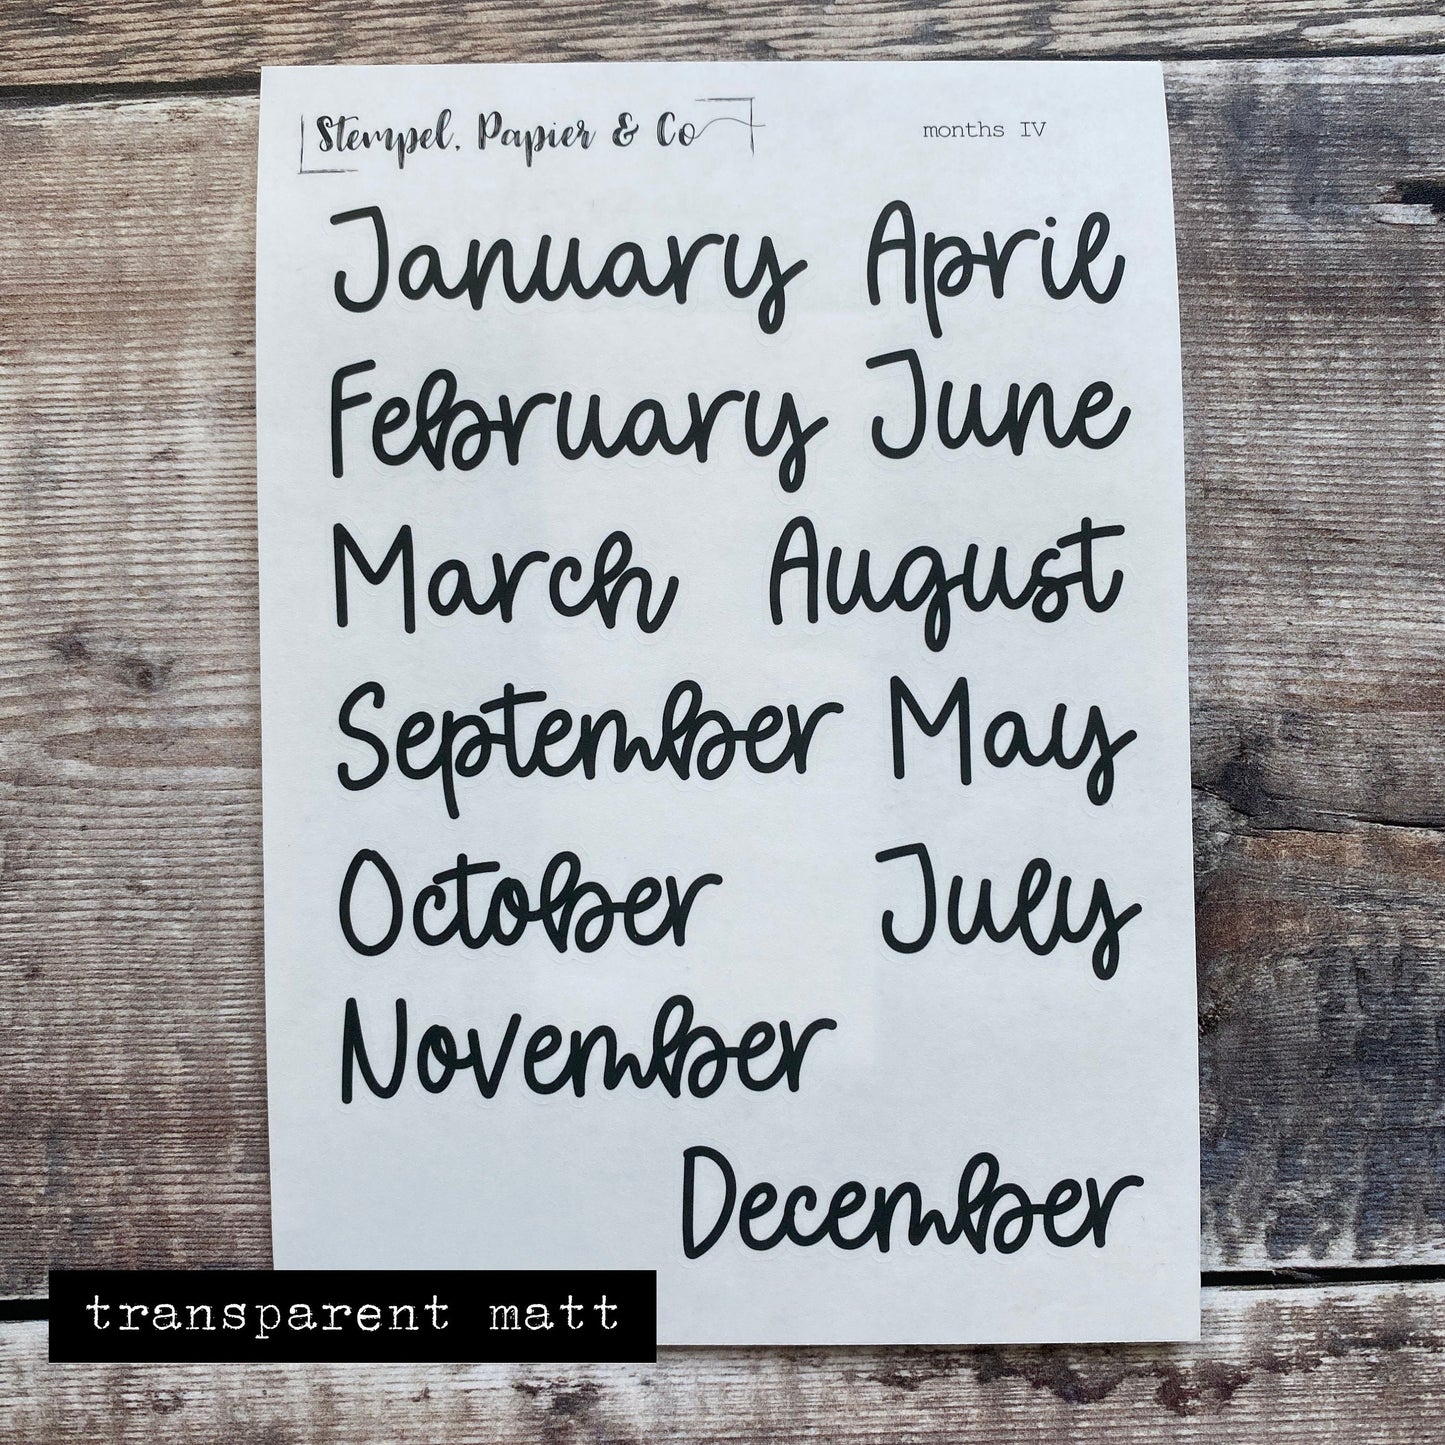 Stempel, Papier & Co
months IV
January April
February June
March August
September May
October July
November
December
transparent matt